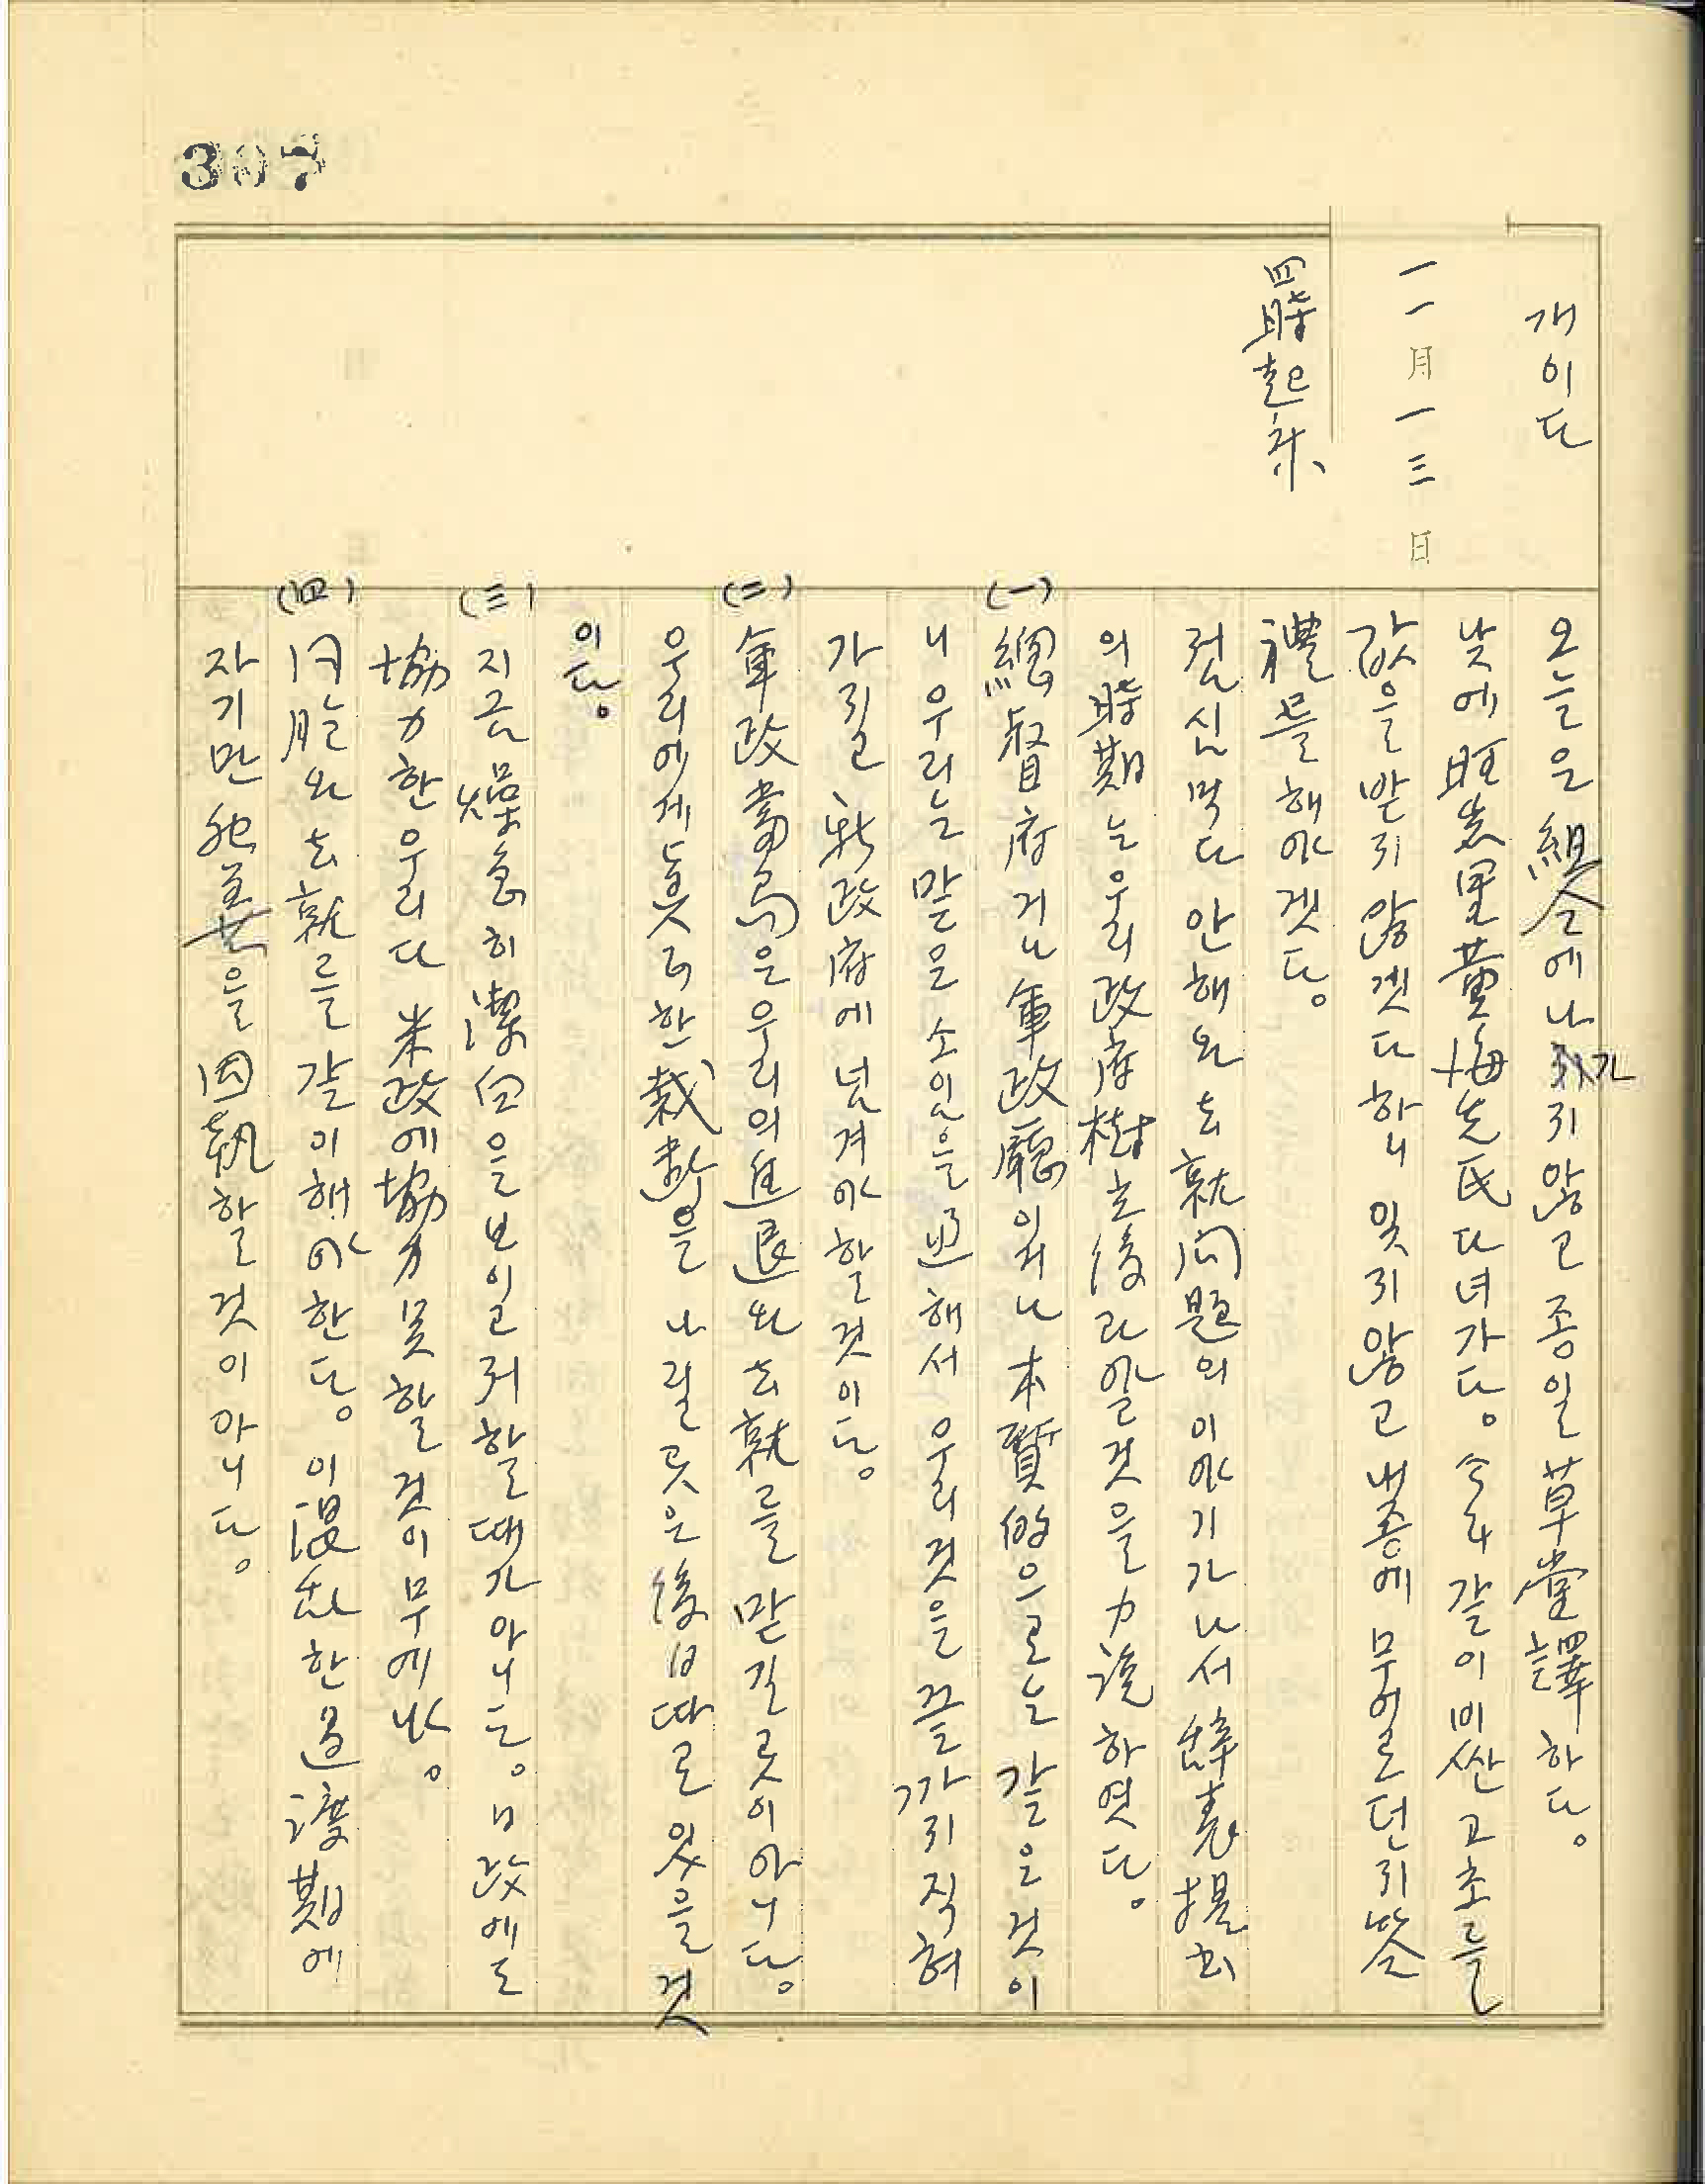 307
개이다
一一月一三日
四時起床
오늘은 組合에 나가지 않고 종일 草堂譯하다.
낮에 旺尖里 黃海先氏 다녀가다. 수락 같이 비싼 고초를
값을 받지 않겟다 하니 잊지 않고 내종에 무어로던지 땀
禮를 해야겟다.
점심 먹다 안해와 去就問題의 이야기가 나서 辭表提出
의 時期는 우리 政府樹立後라야 할 것을 力說하엿다.
(一) 總督府거나 軍政廳이거나 本質的으로는 같은 것이
니 우리는 맡은 소임을 通해서 우리 것을 끝까지 직혀
가지고 新政府에 넘겨야 할 것이다.
(二) 軍政當局은 우리의 進退와 去就를 맡길 곳이 아니다.
우리에게 옳은 한 裁斷을 나릴 곳은 後日 따로 있을 것
이다.
(三) 지금 燥急히 潔白을 보이고저 할 때가 아니다. 日政에도
協力한 우리다 米政에 協力 못할 것이 무에냐.
(四) 同胞와 去就를 같이 해야 한다. 이 混沌한 過渡期에
자기만 獨善을 固執할 것이 아니다.